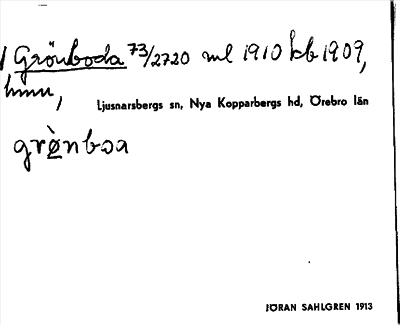 Grönboda 73/2720 ml 1910 kb 1909,
hmn,
Ljusnarsbergs sn, Nya Kopparbergs hd, Örebro län
grø̀nboa
JÖRAN SAHLGREN 1913